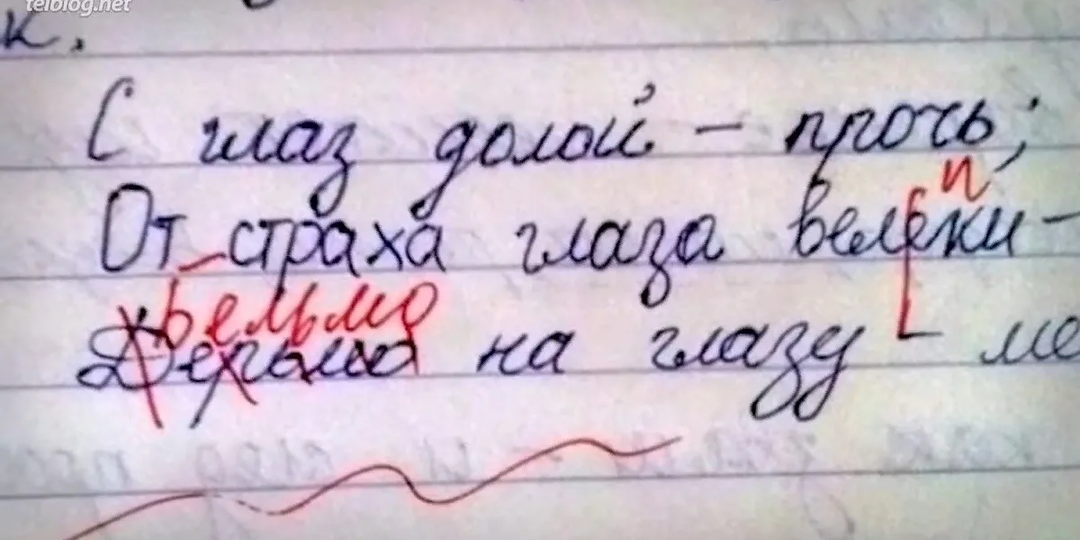 telblog.net
к.
С глаз долой – прочь;
и
От страха глаза велеки –
Бельмо
Дерьма на глазу – ме